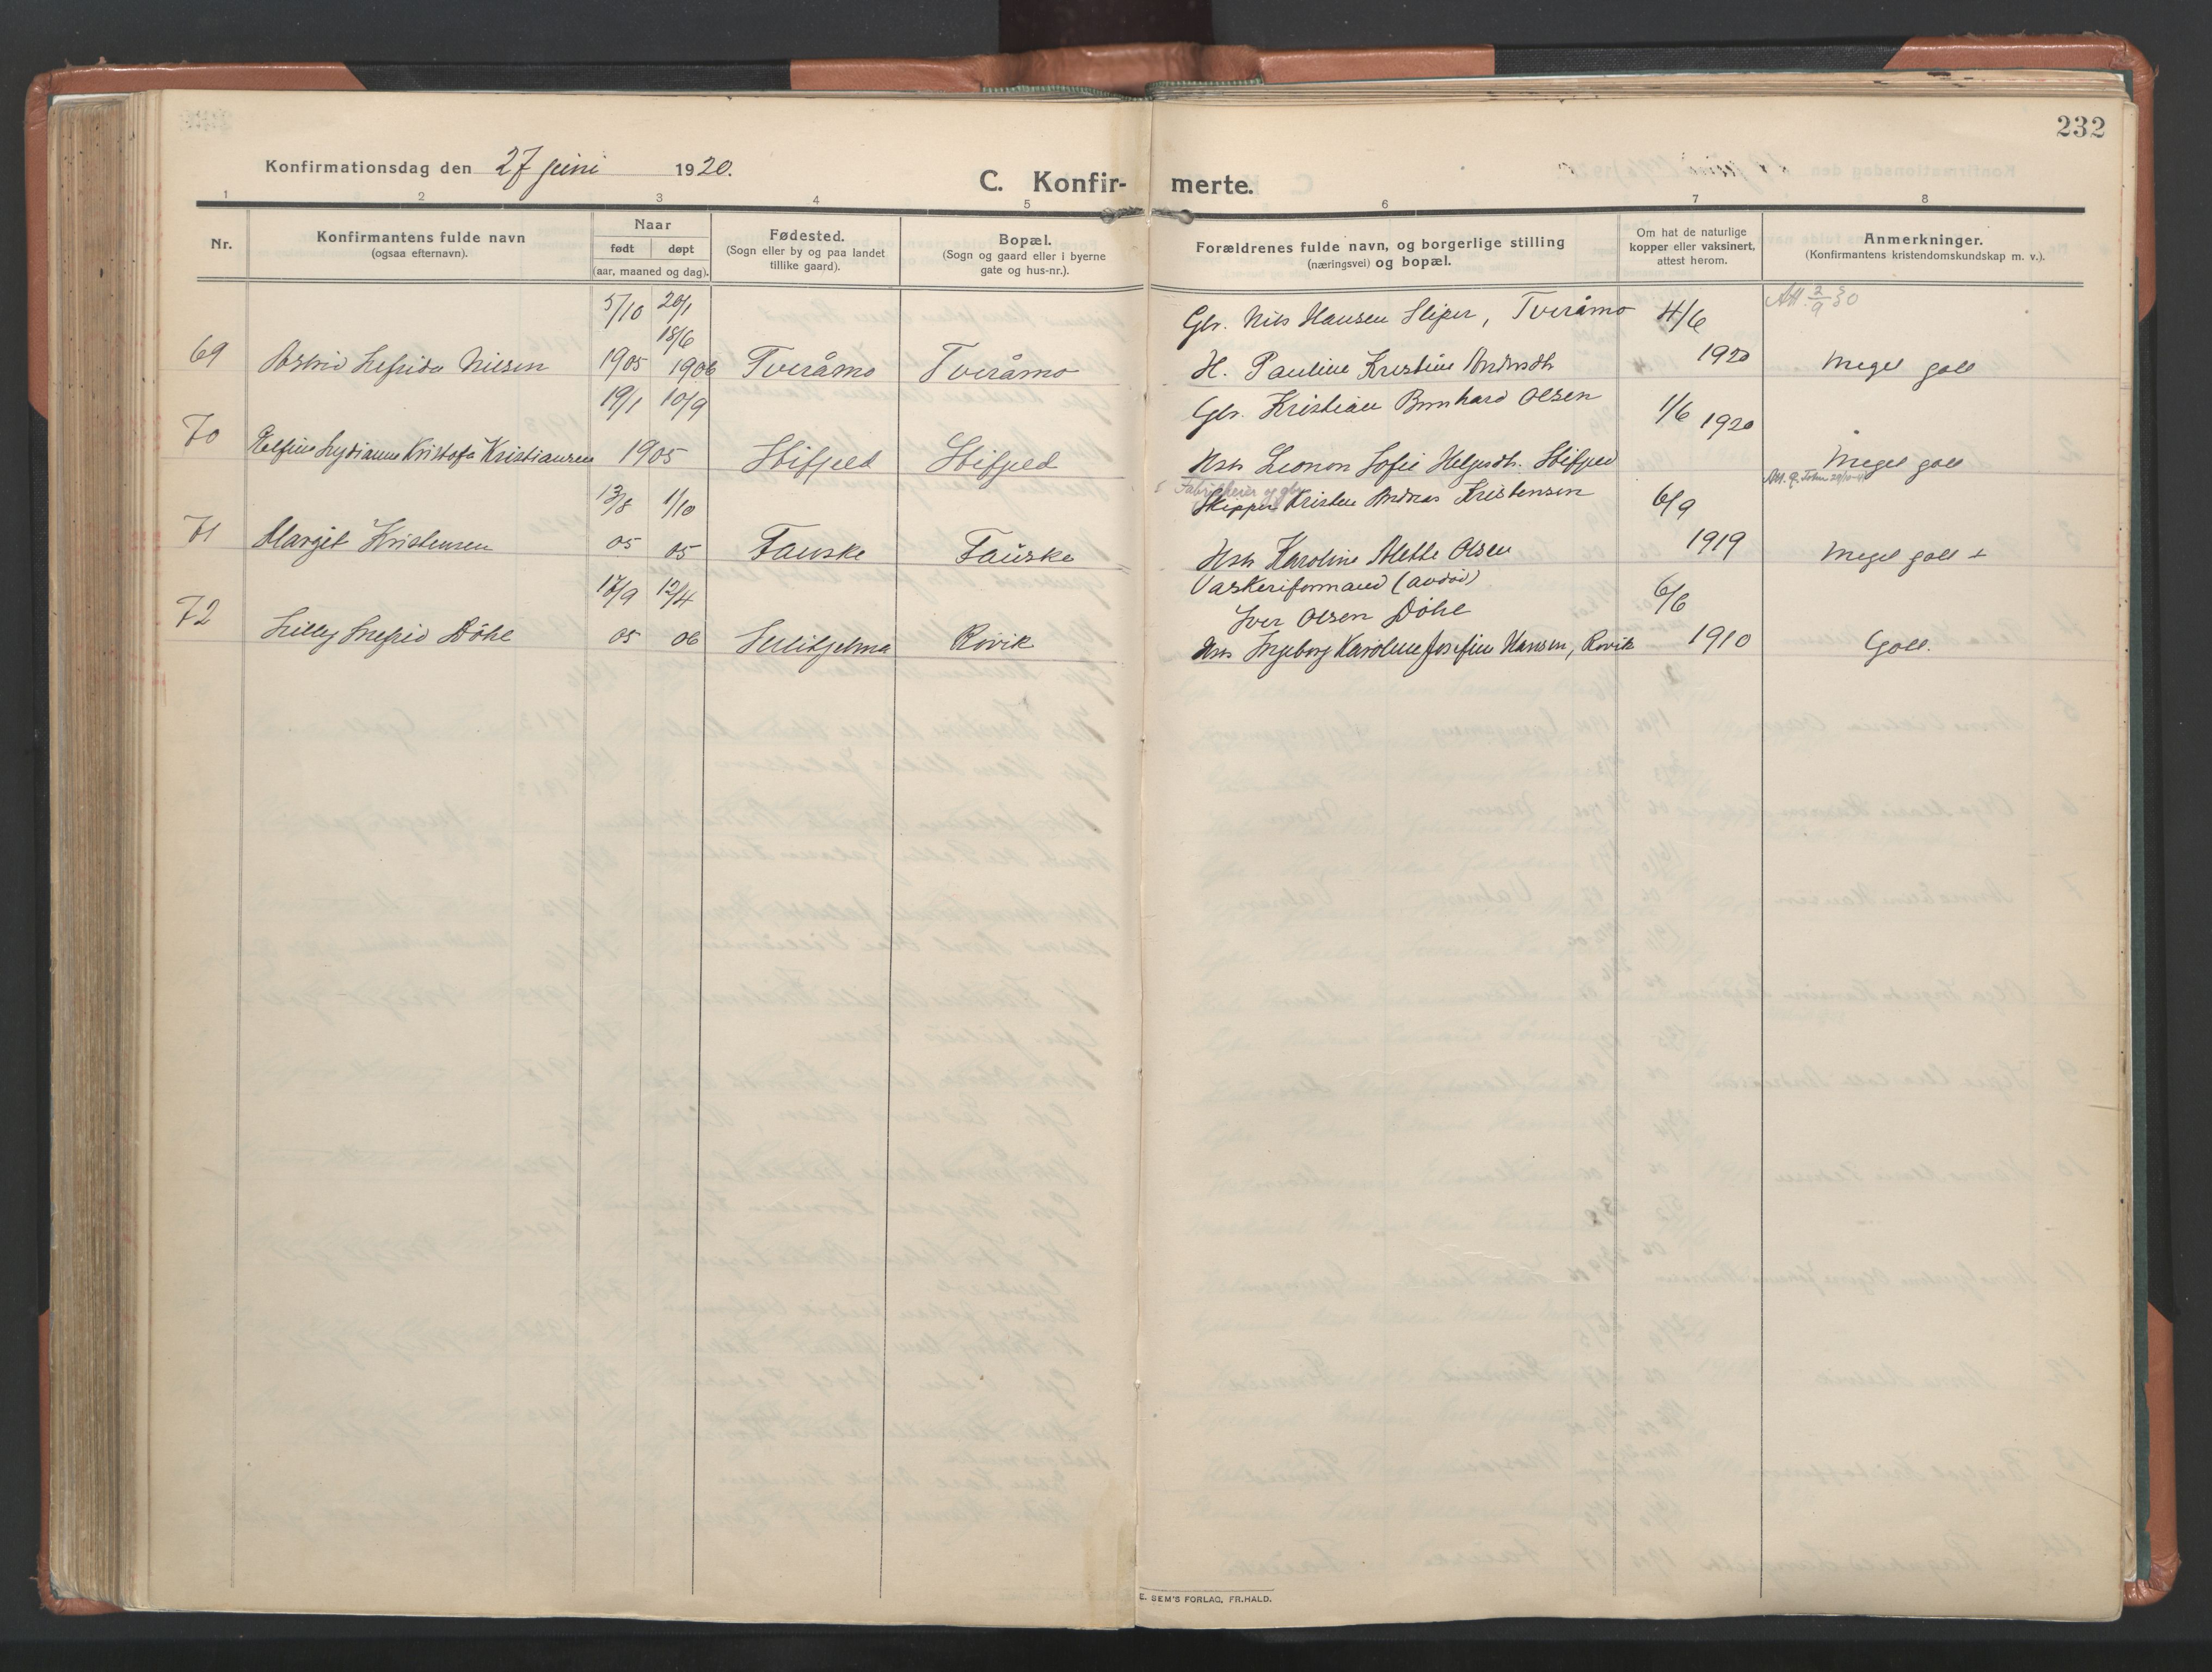 232
Konfirmationsdag den 27 juni 1920.
C. Konfir- merte.
1 2 3 4 5 6 7 8
Nr.
Konfirmantens fulde navn
(ogsaa efternavn).
Naar
født døpt
(aar, maaned og dag).
Fødested.
(Sogn eller by og paa landet
tillike gaard).
Bopæl.
(Sogn og gaard eller i byerne
gate og hus-nr.).
Forældrenes fulde navn, og borgerlige stilling
(næringsvei) og bopæl.
Om hat de naturlige
kopper eller vaksinert,
attest herom.
Anmerkninger.
(Konfirmantens kristendomskundskap m. v.).
5/10 20/1 Gbr. Nils Hansen Sliper, Tveråmo 4/6 Att. 2/9 30
18/6
69 Astrid Nilsen 1905 1906 Tveråmo Tveråmo H. Pauline Kristine 1920 Meget godt
19/1 10/9 Gbr. Kristian Bernhard Olsen 1/6 1920
70 Lydianna Kristofa Kristiansen 1905 Stifjeld Stifjeld Hstr Sofie Stifjeld Meget godt
Att.
13/8 1/10 Skipper Kristen Andreas Kristensen 6/9
71 Margit Kristensen 05 05 Fauske Fauske Hstr Karoline Olsen 1919 Meget godt +
17/9 12/4 Vaskeriformand (avdød)
Iver Olsen Døhl 6/6
72 Lilly Døhl 05 06 Sulitjelma Røvik Hstr Ingeborg Karoline Josefine Hansen, Røvik 1910 Godt.
E. SEM'S FORLAG, FR.HALD.